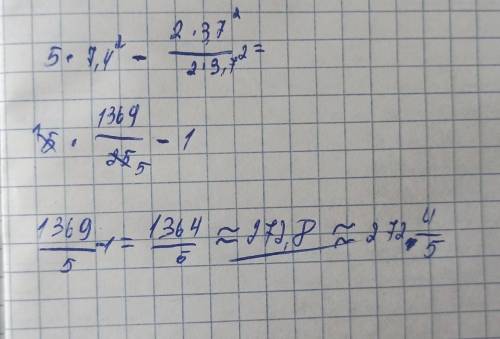 5 · 7,4² − (2 · 3,7²)/(2 · 3,7²) =
¹5̶ · 1369/2̶5̶ 5 − 1
1369/5 − 1 = 1364/5 ≈ 272,8 ≈ 272 4/5